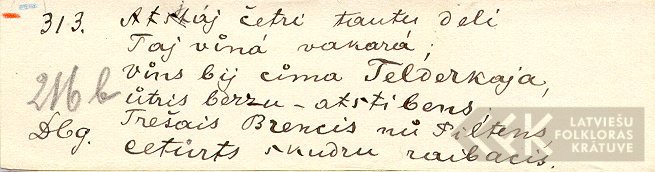 313. Atstáj četri tautu deli
Taj vîná vakará;
Vîns bij cîma Telderkaja,
ûtris berzu-atstibens,
216 b
Trešais Brencis nû Piltens,
Dbg.
cetûrts skudru raibacis.
LATVIEŠU
FOLKLORAS
KRĀTUVE